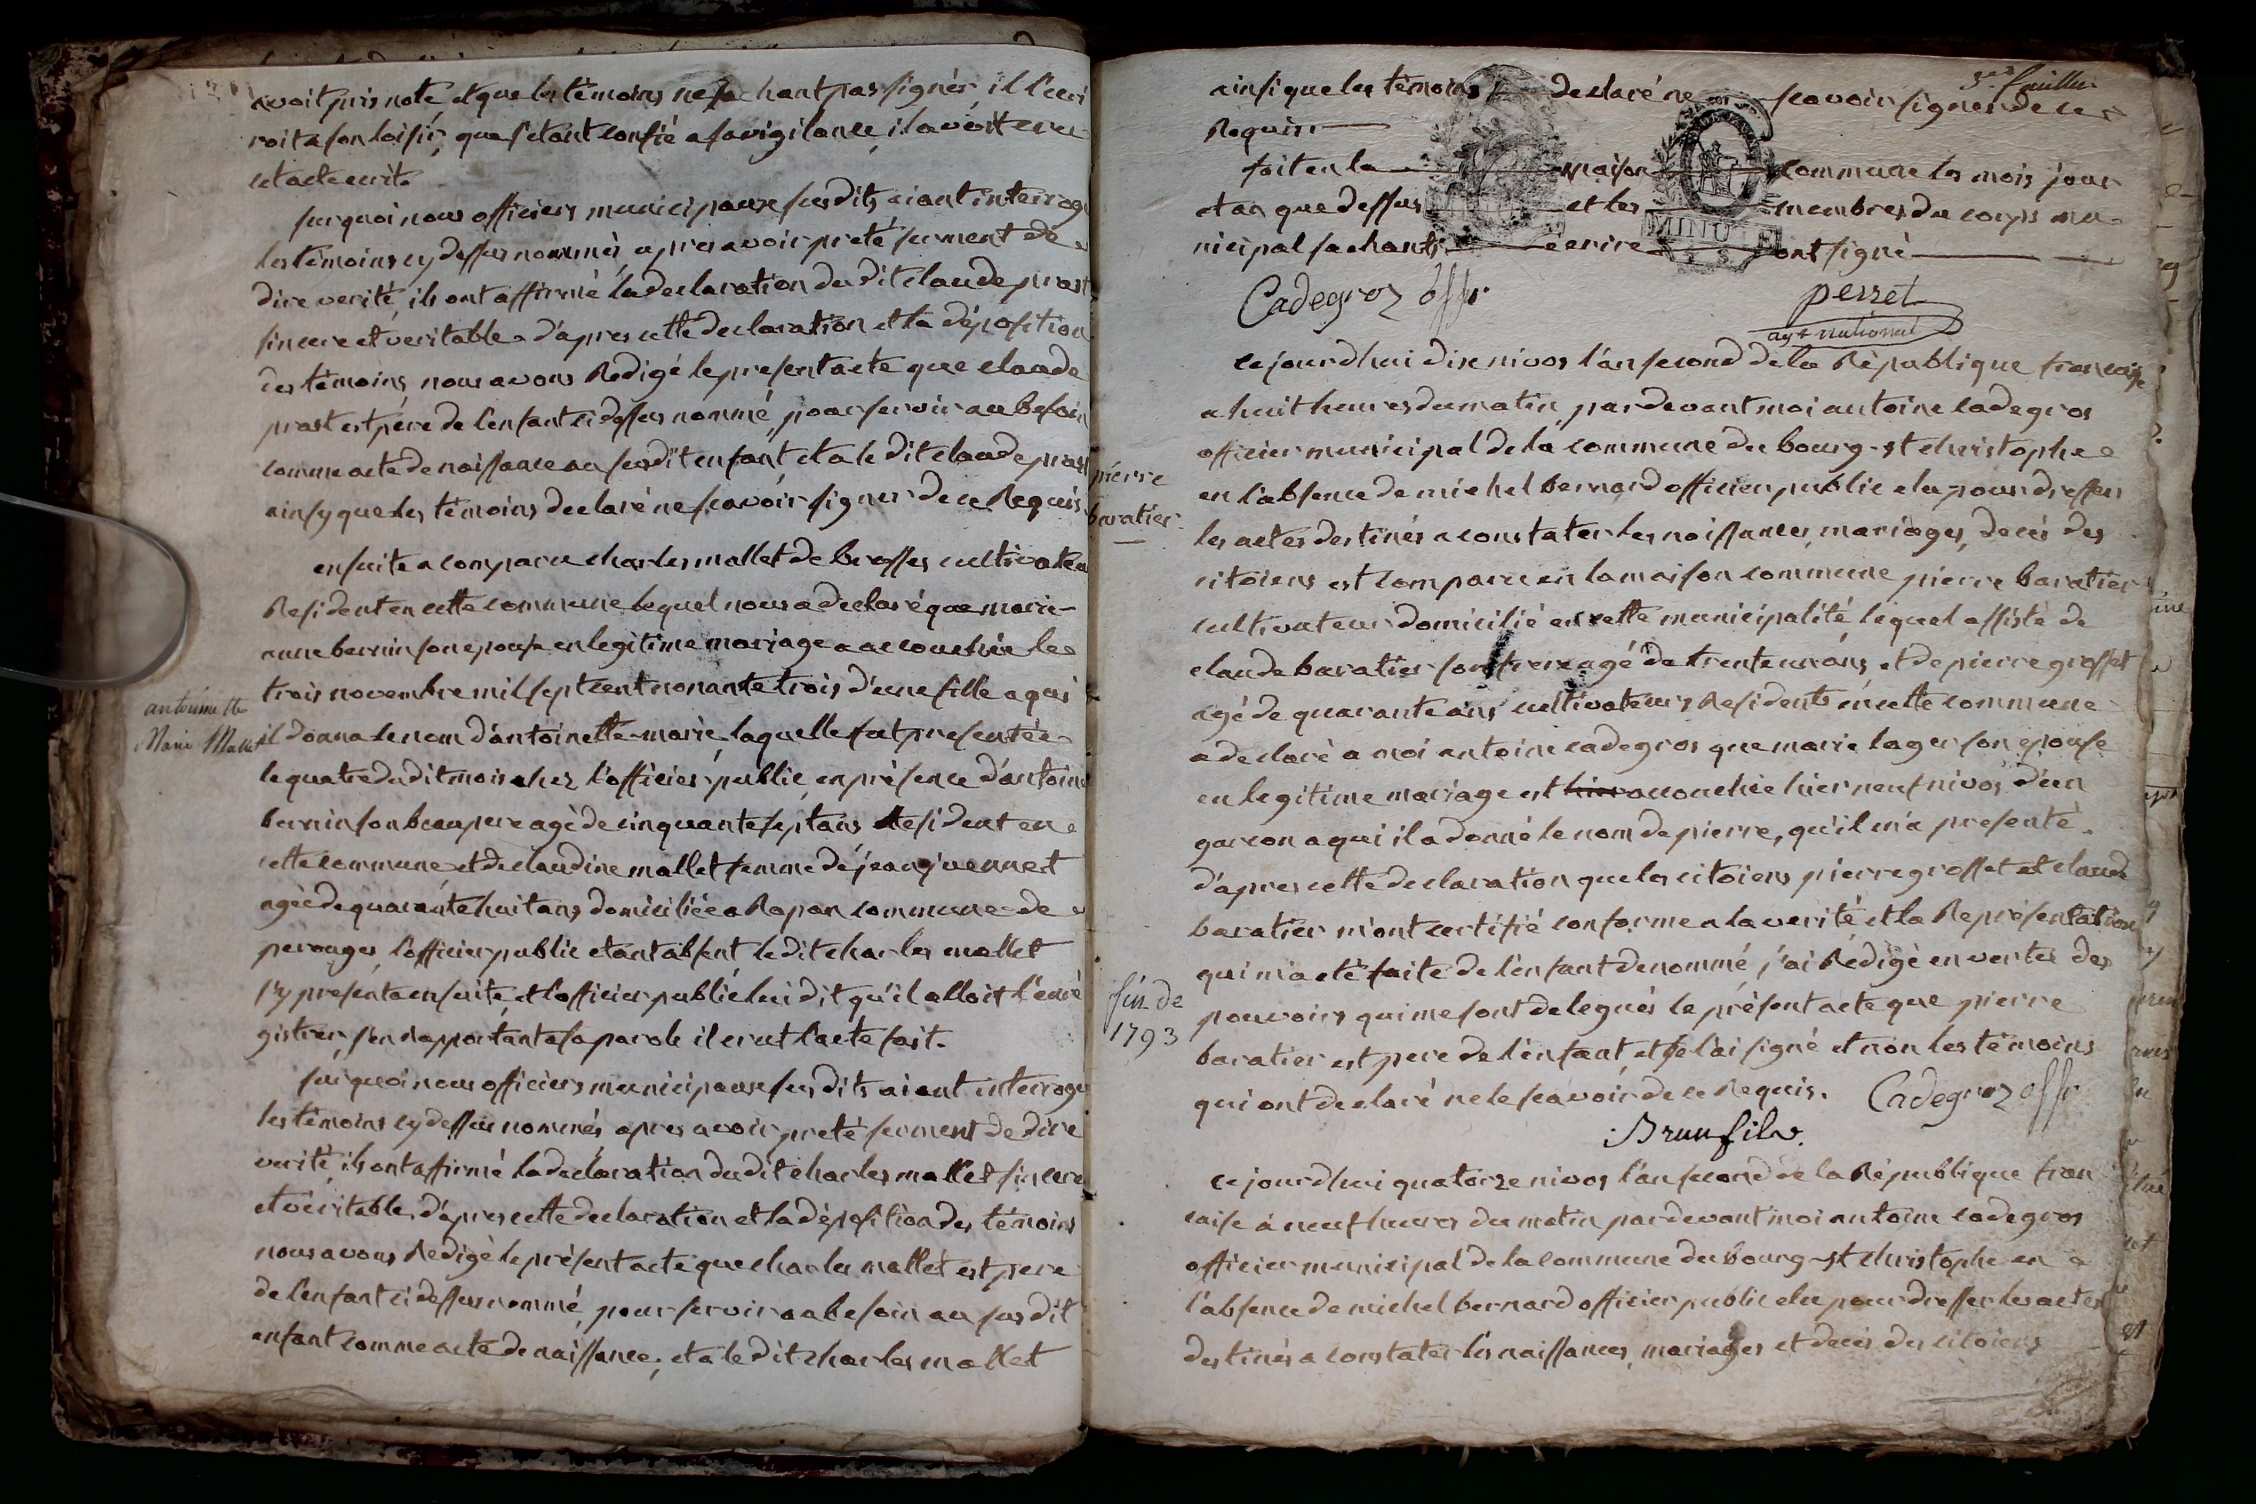 avoit pris note, et que les témoins ne sachant pas signér il l'ecri
roit a son loisir, que s'etant confié a sa vigilance, il avoit cru
cet acte ecrit.
surquoi nous officiers municipaux susdits aiant interrogé
les témoins cy dessus nommés, apres avoir preté serment de
dire verité, ils ont affirmé la declaration du dit claude prost
sincere et veritable d'apres cette declaration et la déposition
des témoins, nous avons Redigé le present acte que claude
prost est pére de l'enfant ci dessus nommé, pour servir au besoin
comme acte de naissance au susdit enfant et a le dit claude prost
ainsy que les témoins declaré ne scavoir signer de ce Requis.
ensuite a comparu charles mallet de brosses cultivateu
Resident en cette commune lequel nous a declaré que marie
anne bernin son epouse en legitime mariage a accouchée le
trois novembre mil sept cent nonante trois d'une fille a qui
antoinette
Marie Mallet
il donna le nom d'antoinette-marie, laquelle fut presentée
le quatre du dit mois chez l'officier public, en présence d'antoine
bernin son beaupere agé de cinquante sept ans Resident en
cette commune et de claudine mallet femme de jean juennet
agée de quarante huit ans domiciliée a Rapan commune de
perouges, l'officier public etant absent le dit charles mallet
s'y presenta ensuite, et l'officier public lui dit qu'il alloit l'enré
gistrer, s'en Rapportant a sa parole il crut l'acte fait.
surquoi nous officiers municipaux susdits aiant interrogé
les témoins cy dessus nommés apres avoir preté serment de dire
verité, ils ont affirmé la declaration du dit charles mallet sincere
et véritable, d'apres cette declaration et la déposition des témoins
nous avons Redigé le présent acte que charles mallet est pere
de l'enfant ci dessus nommé, pour servir au besoin au sus dit
enfant comme acte de naissance, et a le dit charles mallet
3eme feuillet
ainsi que les témoins declaré ne scavoir signer de ce
Requis
fait en la maison commune les mois jour
et an que dessus et les membres du corps mu-
nicipal sachants ecrire ont signé
MINUTE
Cadegroz offr
perret
agt national
pierre
baratier
ce jourd'hui dix nivos l'an second de la République francaise
a huit heures du matin, par devant moi antoine cadegros
officier municipal de la commune du bourg-st christophe
en l'absence de michel bernard officier public elu pour dresser
les actes destinés a constater les naissances, mariages, decés des
citoiens est comparu en la maison commune pierre baratier
cultivateur domicilié en cette municipalité lequel assisté de
claude baratier son frere agé de trente un ans, et de pierre grosset
agé de quarante ans cultivateurs Residents en cette commune
a declaré a moi antoine cadegros que marie lager son epouse
en legitime mariage est hier accouchée hier neuf nivos d'un
garcon a qui il a donné le nom de pierre, qu'il m'a presenté.
d'apres cette declaration que les citoiens pierre grosset et claude
baratier m'ont certifié conforme a la verité et la Représentation
qui m'a été faite de l'enfant denommé, j'ai Rédigé en vertu des
fin de
1793
pouvoirs qui me sont delegués le présent acte que pierre
baratier est pere de l'enfant, et je l'ai signé et non les témoins
qui ont declaré ne le scavoir de ce Requis. Cadegroz offr
Brun fils
ce jourd'hui quatorze nivos l'an second de la République fran
caise a neuf heures du matin par devant moi antoine cadegros
officier municipal de la commune du bourg-st christophe en
l'absence de michel bernard officier public elu pour dresser les actes
destinés a constater les naissances, mariages et decés des citoiens